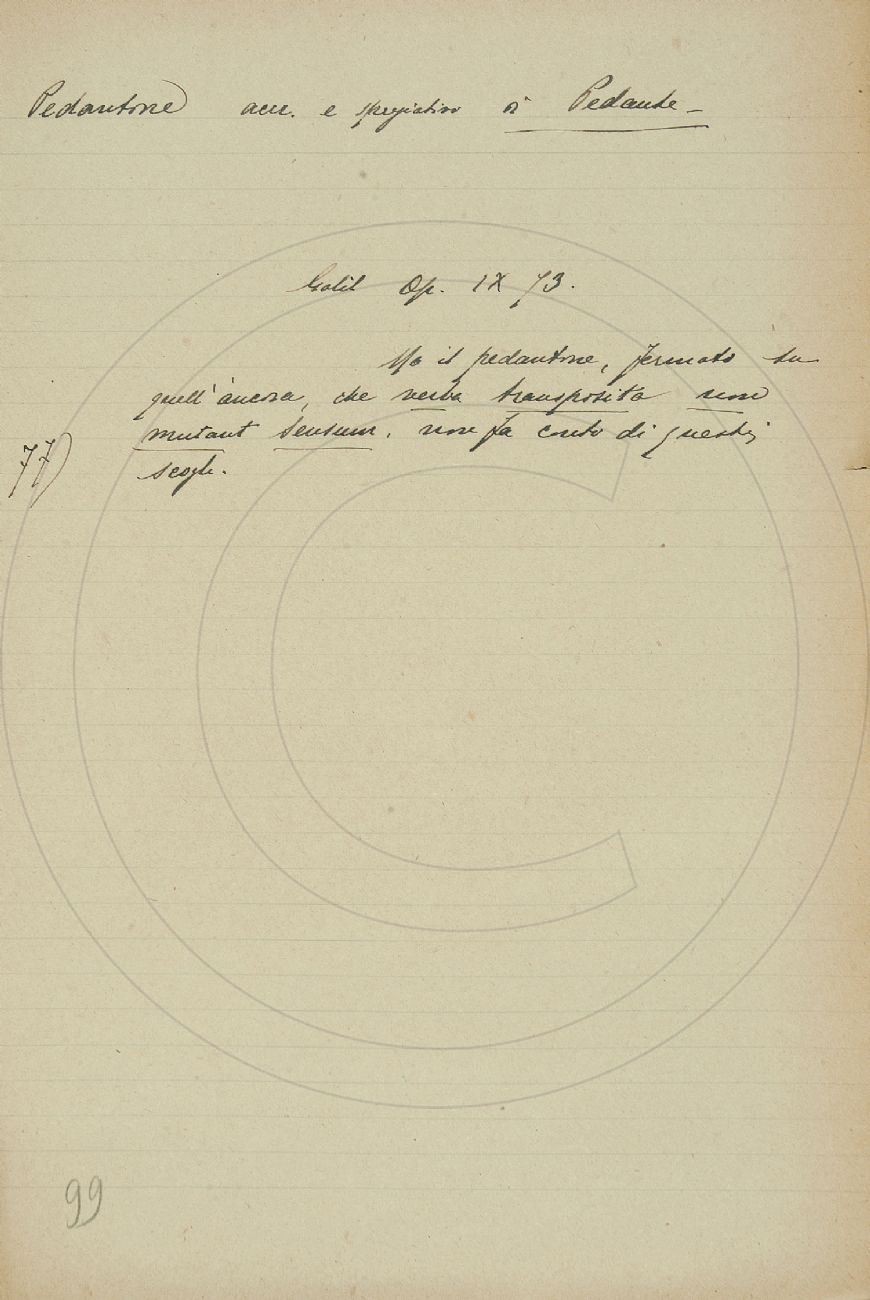 Pedantone accr. e spregiativo di Pedante -
Galil Op. IX 73.
Ma il pedantone, fermato su
quell'àncora, che verba transposita non
mutant sensum, non fa conto di questi
77) scogli.
99